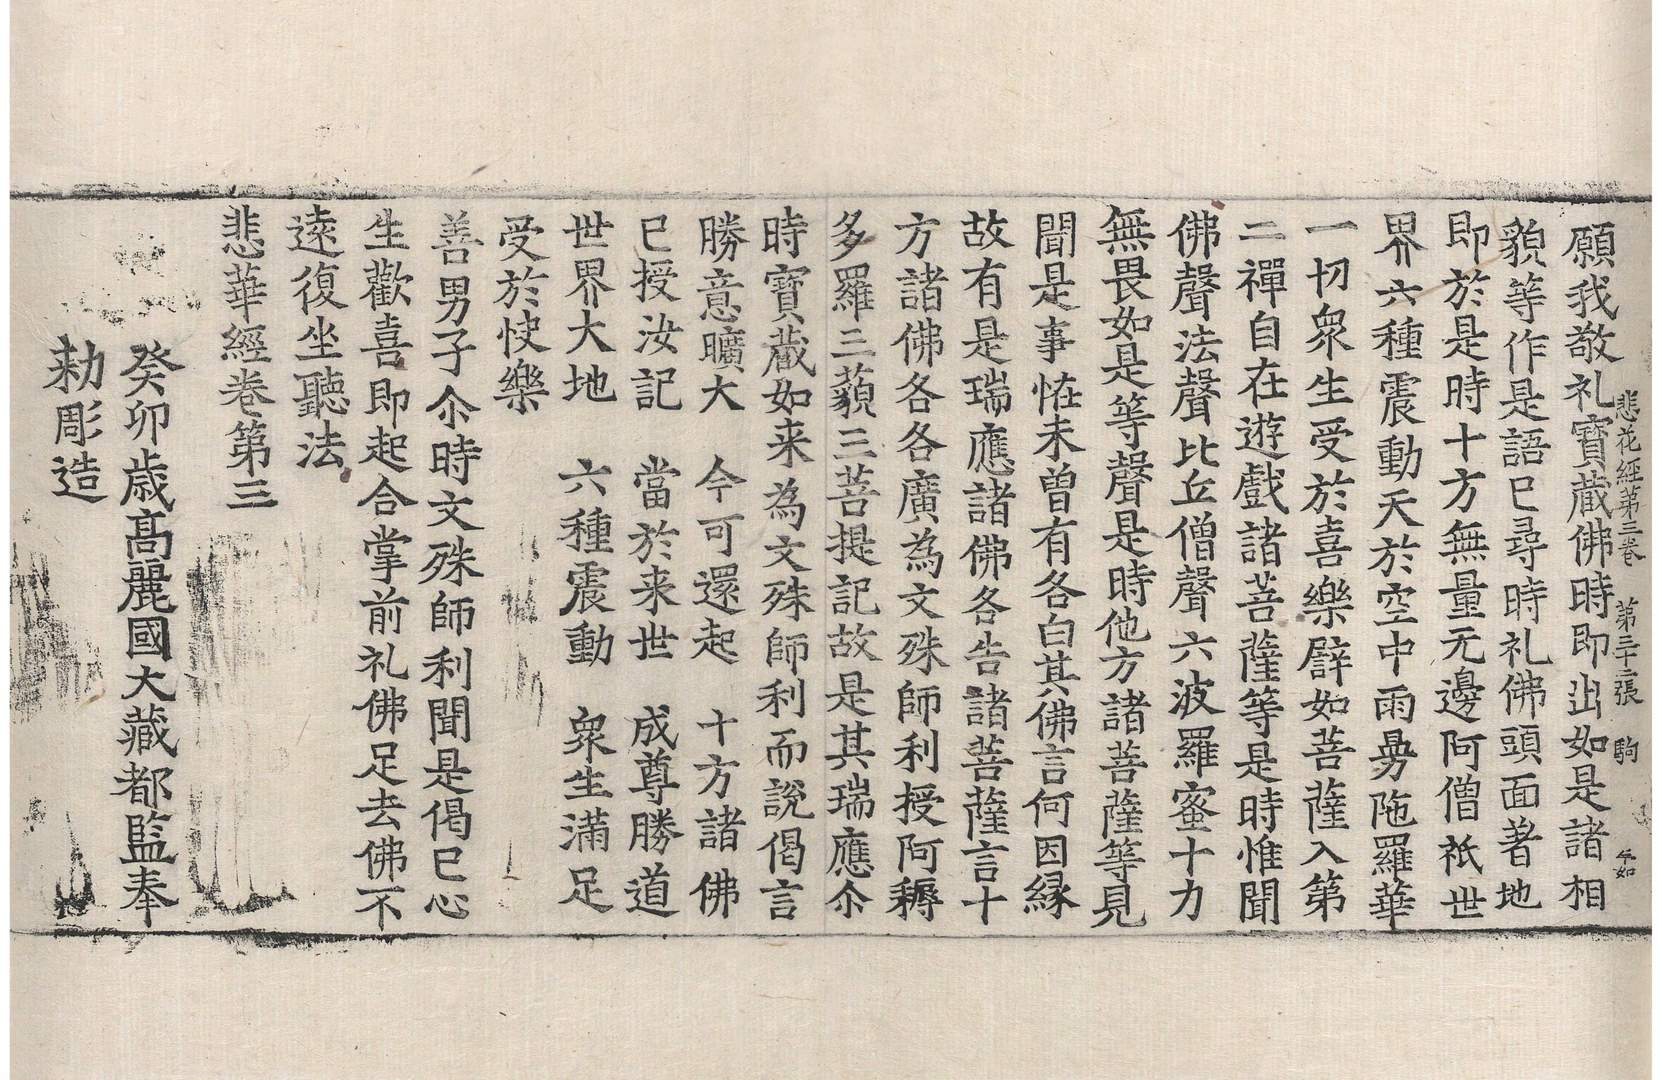 悲花經第三卷　第三十二張　駒
願我敬礼寶藏佛時即出如是諸相
貌等作是語已尋時礼佛頭面著地
即於是時十方無量无邊阿僧祇世
界六種震動天於空中雨曼陁羅華
一切衆生受於喜樂譬如菩薩入第
二禪自在遊戲諸菩薩等是時惟聞
佛聲法聲比丘僧聲六波羅蜜十力
無畏如是等聲是時他方諸菩薩等見
聞是事恠未曾有各白其佛言何因縁
故有是瑞應諸佛各告諸菩薩言十
方諸佛各各廣為文殊師利授阿耨
多羅三藐三菩提記故是其瑞應尒
時寶藏如来為文殊師利而說偈言
勝意曠大　今可還起　十方諸佛
已授汝記　當於来世　成尊勝道
世界大地　六種震動　衆生滿足
受於快樂
善男子尒時文殊師利聞是偈已心
生歡喜即起合掌前礼佛足去佛不
遠復坐聽法
悲華經卷第三
癸卯歲高麗國大藏都監奉
勑彫造